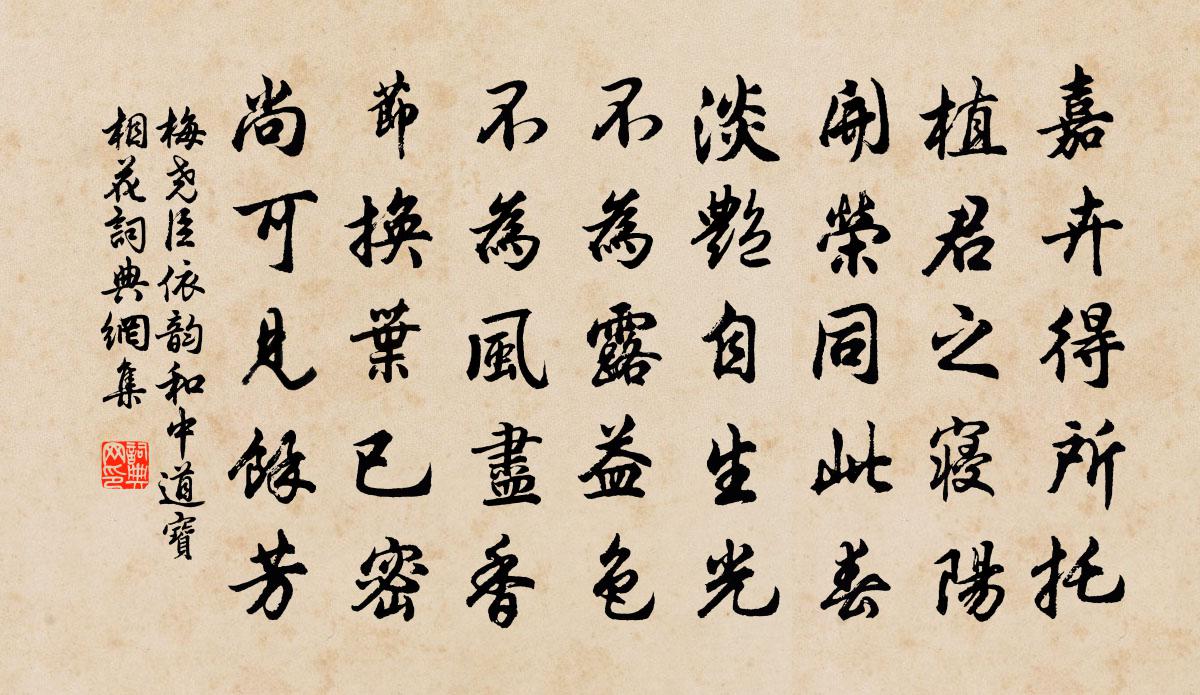 嘉卉得所托
植君之寢陽
開榮同此春
淡艷自生光
不為露益色
不為風盡香
節換葉已密
尚可見餘芳
梅堯臣依韵和中道寶
相花詞典網集
詞典
网印